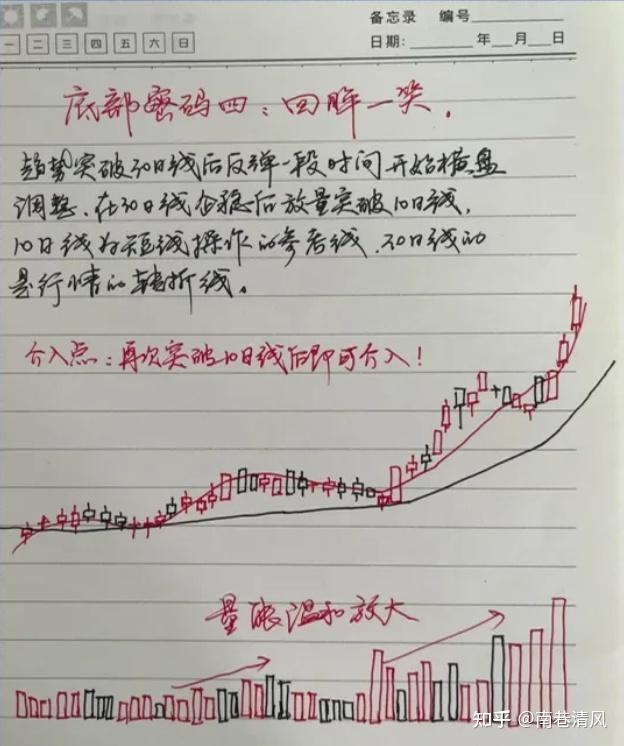 备忘录 编号
一 二 三 四 五 六 日
日期: 年 月 日
底部密码四：回眸一笑.
趋势突破30日线后反弹一段时间开始横盘
调整、在30日线企稳后放量突破10日线,
10日线为短线操作的参考线、30日线的
是行情的转折线。
介入点：再次突破10日线后即可介入！
量能温和放大
知乎 @南巷清风